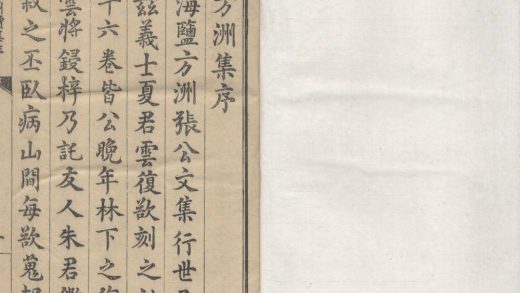 方洲集序
海鹽方洲張公文集行世
茲義士夏君雲復欲刻之
十六卷皆公晚年林下之
雲將鋟梓乃託友人朱君
叙之丕臥病山間每欲蒐